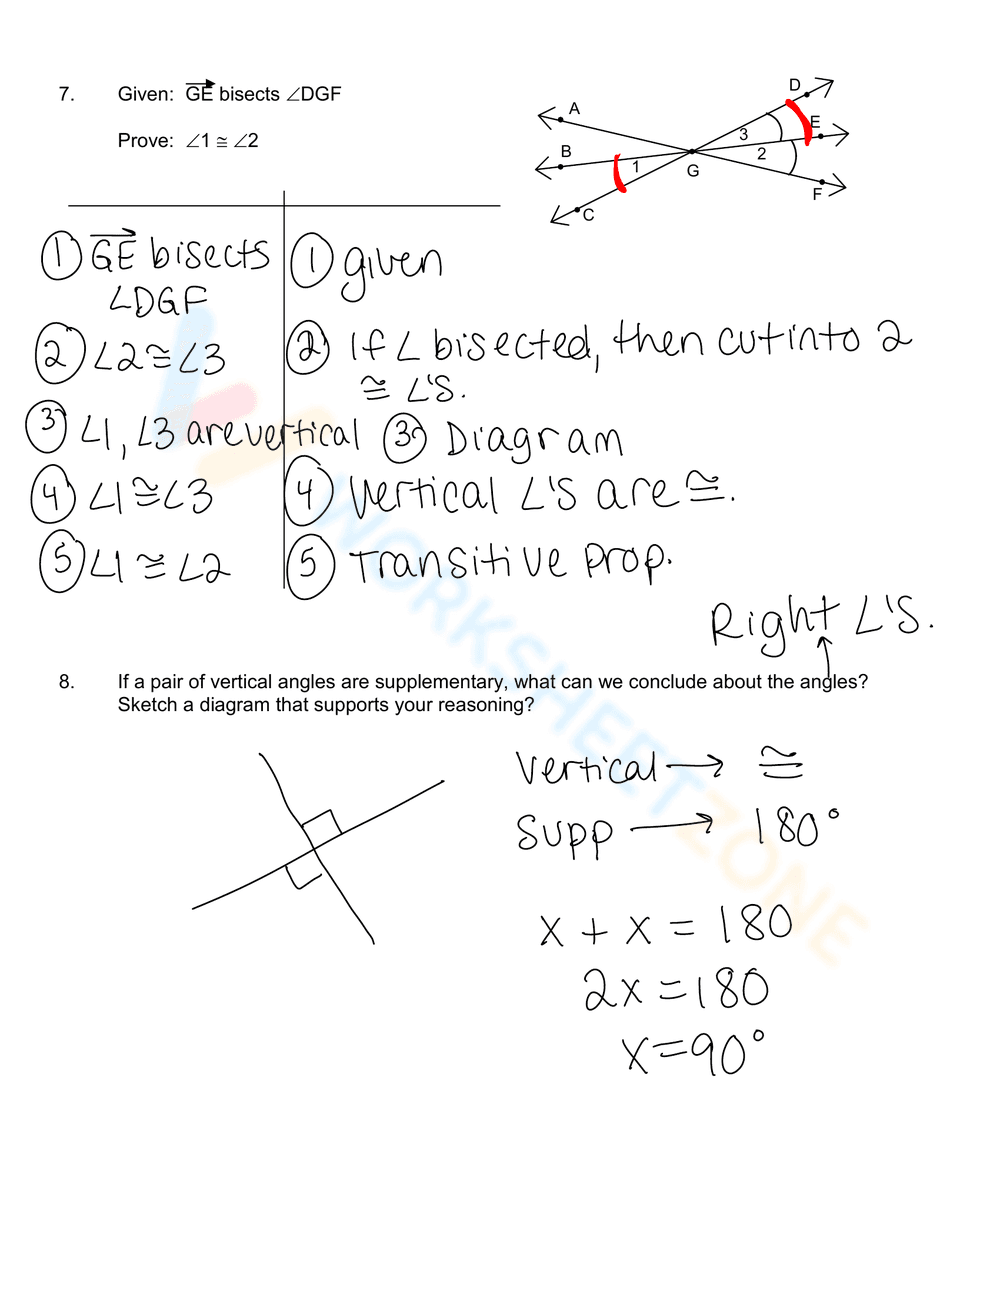 7. Given: GE bisects ∠DGF
Prove: ∠1 ≅ ∠2
A
B
C
D
E
F
G
1
2
3
① GE bisects
∠DGF
① given
② ∠2≅∠3
② If ∠ bisected, then cut into 2
≅ ∠'s.
③ ∠1, ∠3 are vertical
③ Diagram
④ ∠1≅∠3
④ Vertical ∠'s are ≅.
⑤ ∠1≅∠2
⑤ Transitive prop.
Right ∠'s.
8. If a pair of vertical angles are supplementary, what can we conclude about the angles?
Sketch a diagram that supports your reasoning?
Vertical → ≅
Supp → 180°
x + x = 180
2x = 180
x = 90°
WORKSHEETZONE